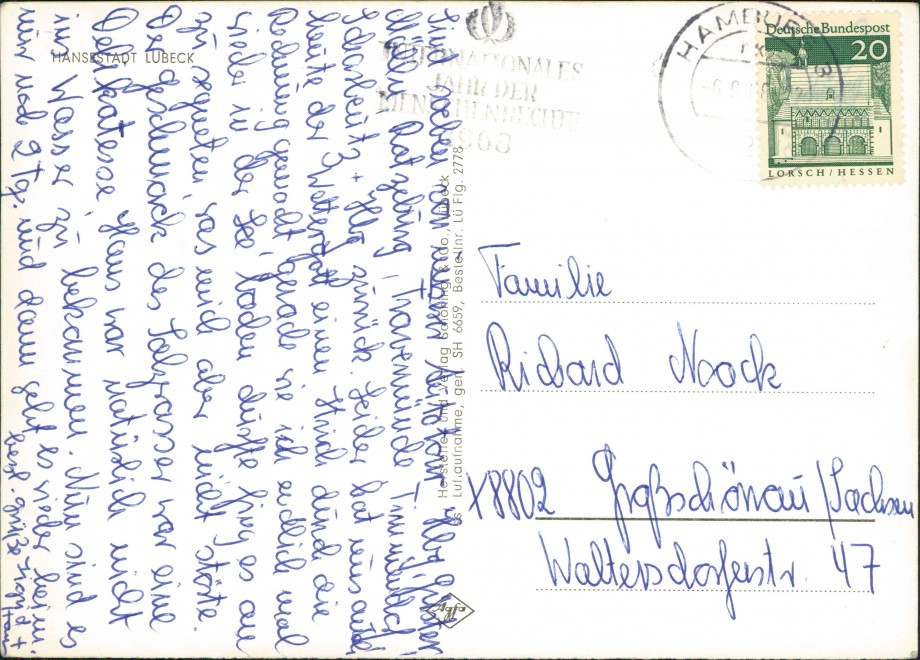 HANSESTADT LÜBECK
INTERNATIONALES
JAHR DER
MENSCHENRECHTE
1968
HAMBURG
Deutsche Bundespost
20
LORSCH / HESSEN
von meiner Autotour
Mölln, Ratzeburg, Travemünde, Timmendf.
Scharbeutz + zurück. Leider hat uns auch
heute der Wettergott einen Strich durch die
Rechnung gemacht. Gerade wie ich endlich mal
wieder in der See baden durfte fing es an
zu regnen, was mich aber nicht störte.
Der Geschmack des Salzwasser war eine
Delikatesse. Haus war natürlich nicht
ins Wasser zu bekommen. Nun sind es
nur noch 2 Tg. und dann geht es wieder heim.
best. Grüße
Hersteller und Verlag Schöning & Co., Lübeck
Luftaufnahme, gen. SH 6659, Bestellnr. Lü Flg. 2778
Agfa
Familie
Richard Noack
X8802 Großschönau/Sachsen
Waltersdorferstr. 47